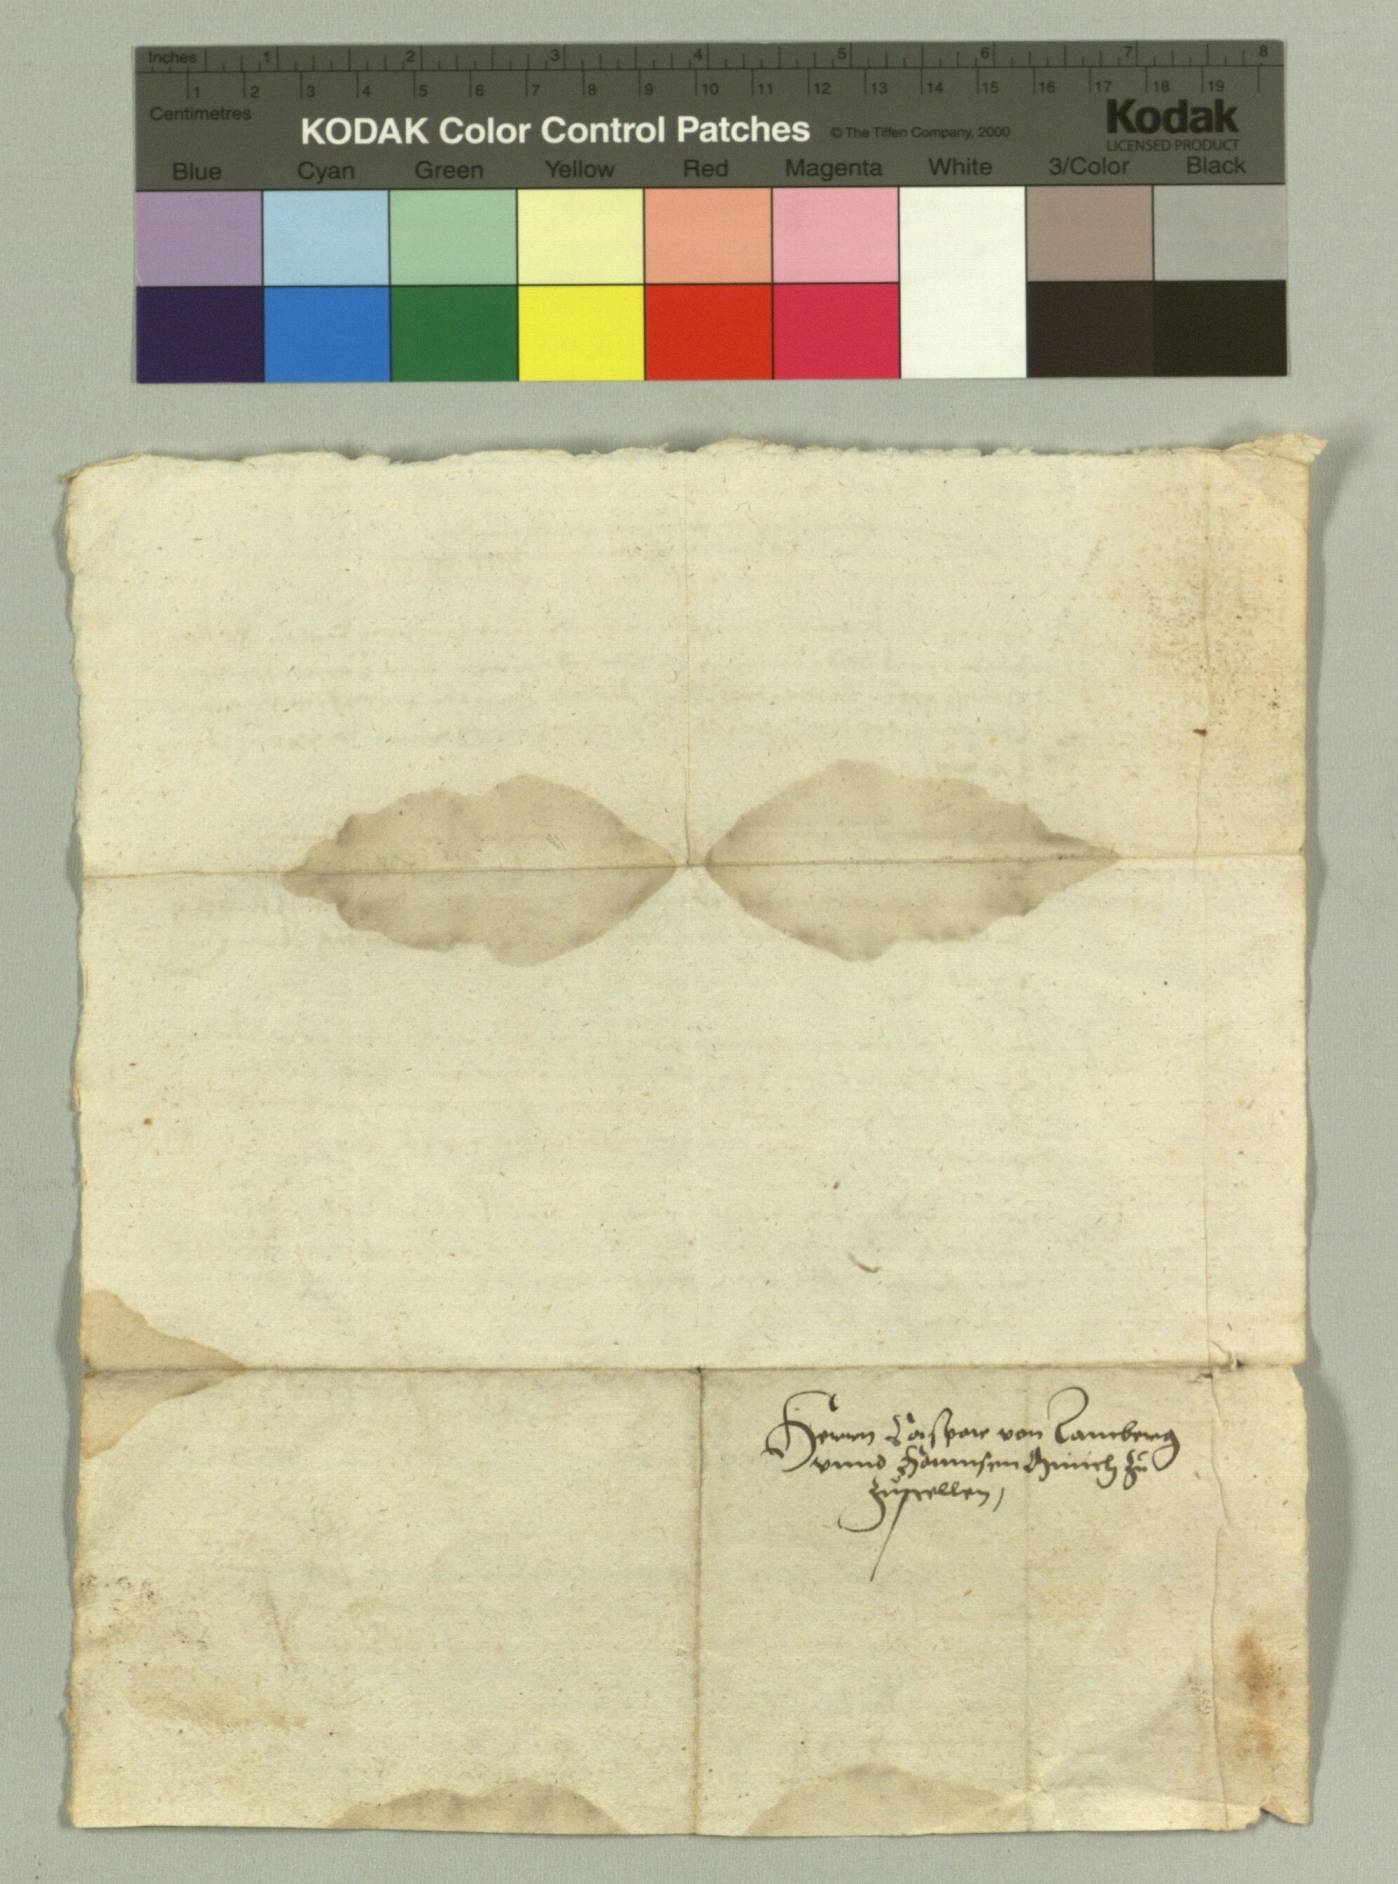 Inches 1 2 3 4 5 6 7 8
1 2 3 4 5 6 7 8 9 10 11 12 13 14 15 16 17 18 19
Centimetres
KODAK Color Control Patches © The Tiffen Company, 2000 Kodak
LICENSED PRODUCT
Blue Cyan Green Yellow Red Magenta White 3/Color Black
Herrn Caspare von Lamberg
vnnd Hannsen zu
zustellen,